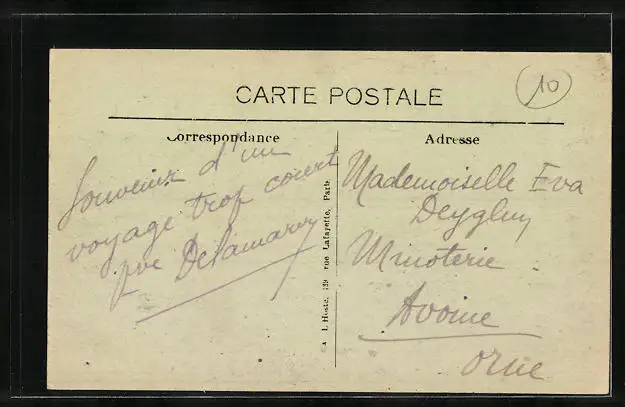 CARTE POSTALE
10
Correspondance
Souvenir d'un
voyage trop court
Delamarre
Adresse
Mademoiselle Eva
Minoterie
Avoine
Orne
L. Hoste, rue Lafayette, Paris